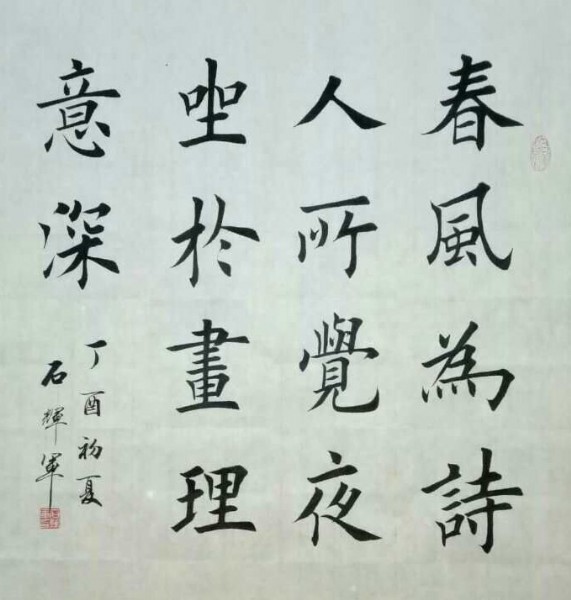 春風為詩
人所覺夜
坐於畫理
意深
丁酉初夏
石輝軍